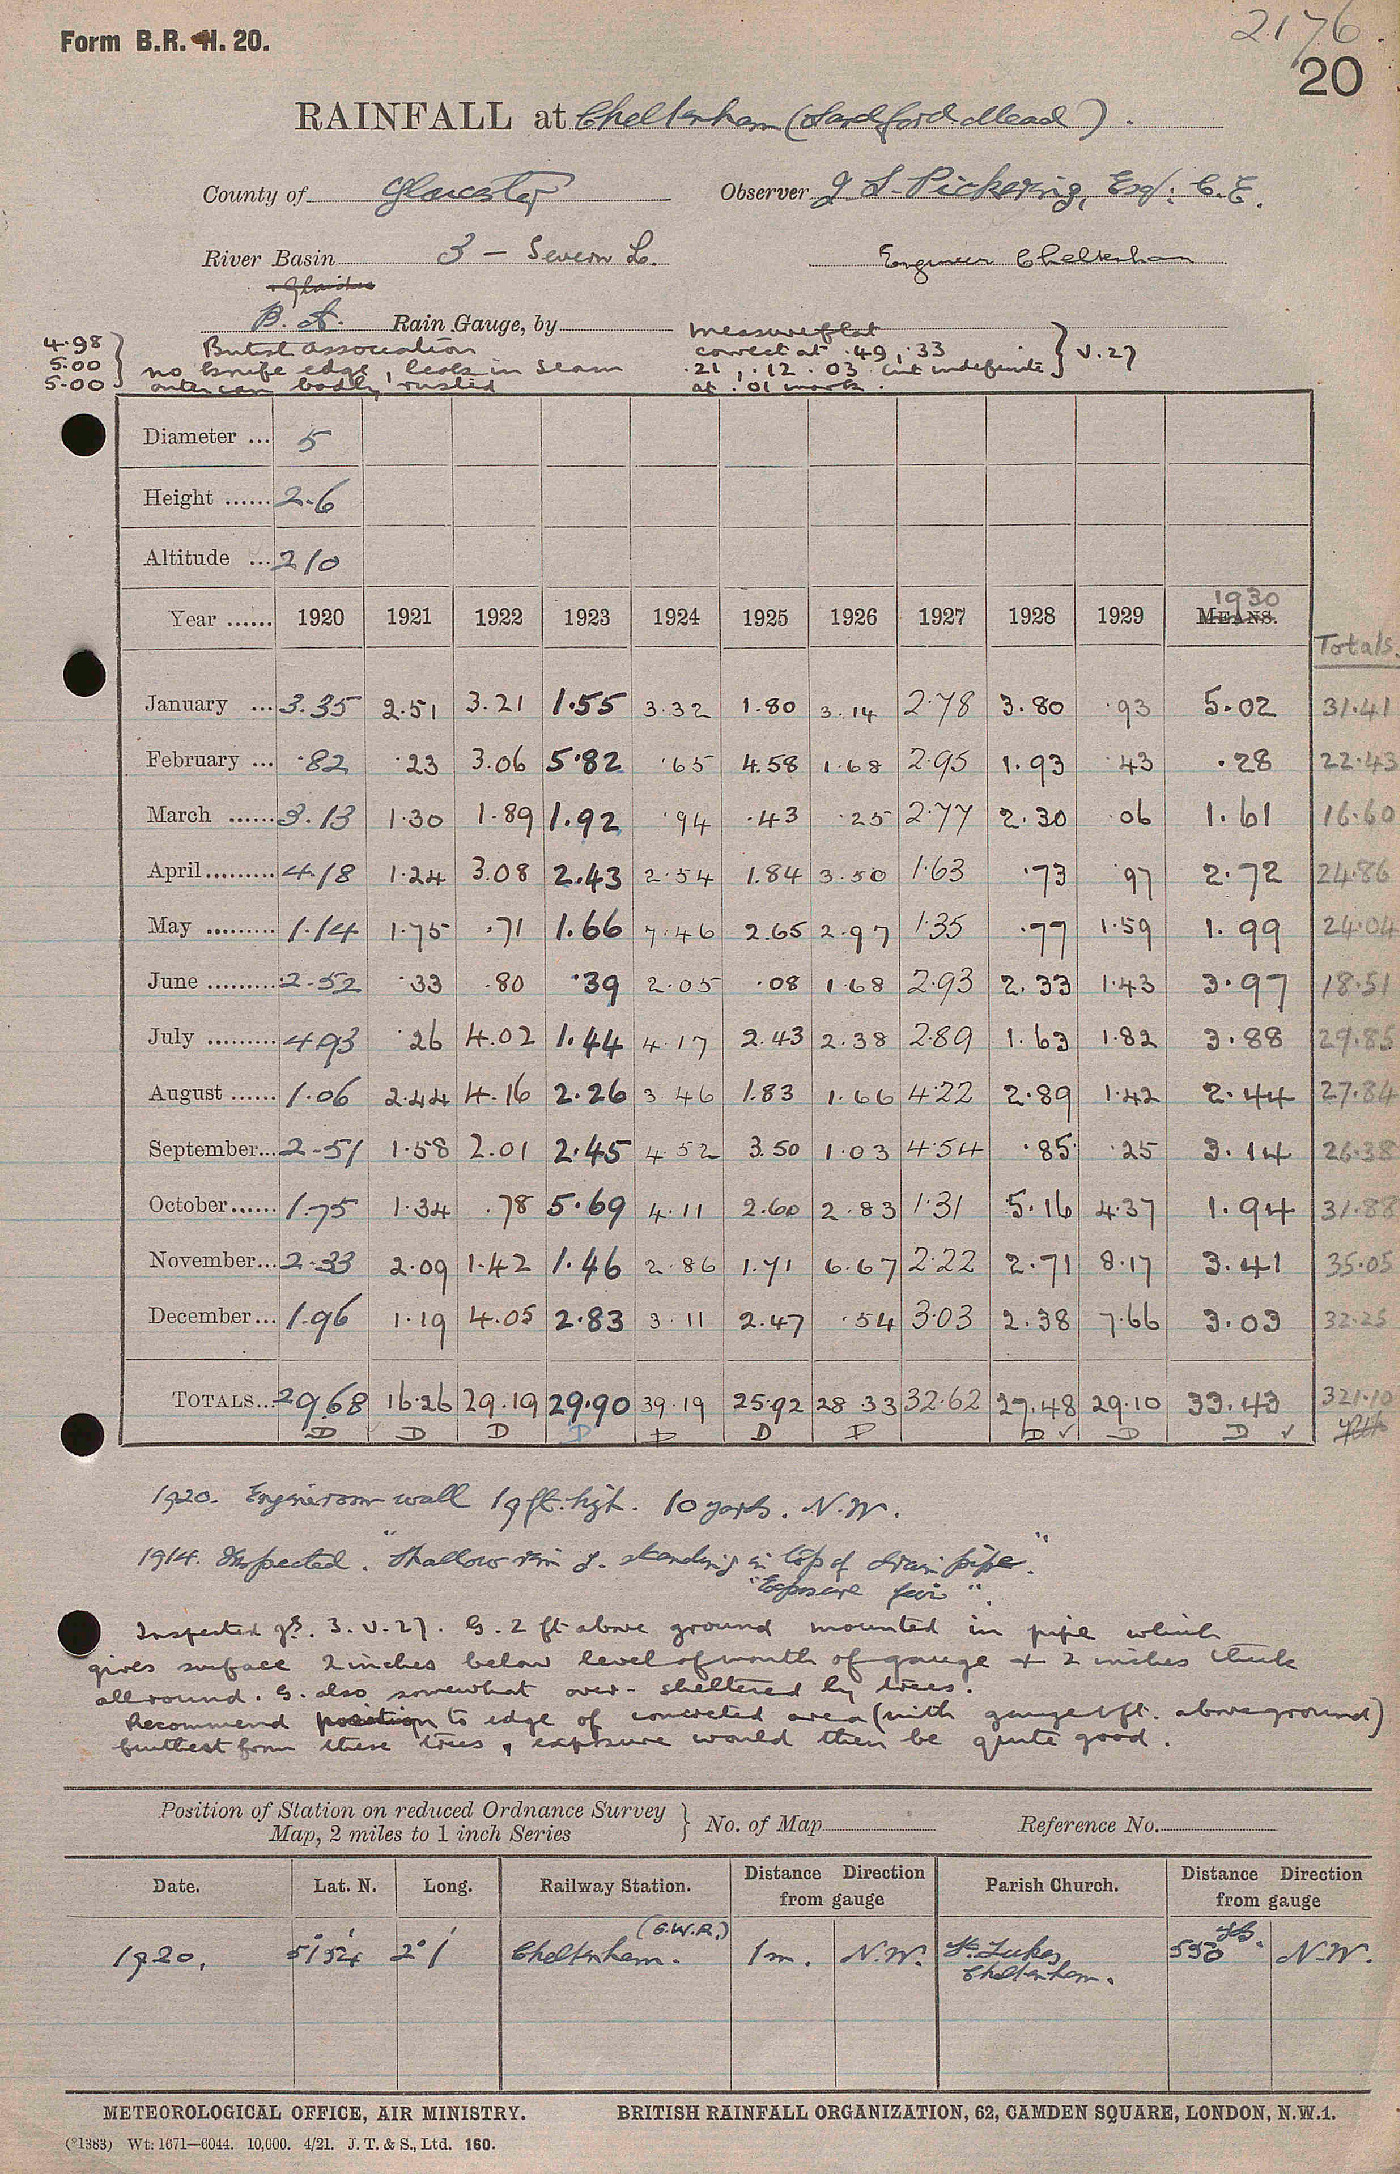 2176
Form B.R. H. 20.
20
RAINFALL at Cheltenham (Sandford Mead).
County of Gloucester Observer J S Pickering, Esq: C.E.
River Basin 3 - Severn L. Engineer Cheltenham
B. A. Rain Gauge, by
4.98 British Association
5.00 no knife edge, leaks in seam
5.00 outer can badly rusted
measure flat
correct at .49, .33
.21, .12 .03 but indefinite } V.27
at .01 mark.
Diameter ... 5
Height ...... 2.6
Altitude ... 210
Year ...... 1920 1921 1922 1923 1924 1925 1926 1927 1928 1929 MEANS. 1930 Totals.
January ... 3.35 2.51 3.21 1.55 3.32 1.80 3.14 2.78 3.80 .93 5.02 31.41
February ... .82 .23 3.06 5.82 .65 4.58 1.68 2.95 1.93 .43 .28 22.43
March ...... 3.13 1.30 1.89 1.92 .94 .43 .25 2.77 2.30 .06 1.61 16.60
April ......... 4.18 1.24 3.08 2.43 2.54 1.84 3.50 1.63 .73 .97 2.72 24.86
May ......... 1.14 1.75 .71 1.66 7.46 2.65 2.97 1.35 .77 1.59 1.99 24.04
June ......... 2.52 .33 .80 .39 2.05 .08 1.68 2.93 2.33 1.43 3.97 18.51
July ......... 4.93 .26 4.02 1.44 4.17 2.43 2.38 2.89 1.63 1.82 3.88 29.85
August ...... 1.06 2.44 4.16 2.26 3.46 1.83 1.66 4.22 2.89 1.42 2.44 27.84
September... 2.51 1.58 2.01 2.45 4.52 3.50 1.03 4.54 .85 .25 3.14 26.38
October...... 1.75 1.34 .78 5.69 4.11 2.60 2.83 1.31 5.16 4.37 1.94 31.88
November... 2.33 2.09 1.42 1.46 2.86 1.71 6.67 2.22 2.71 8.17 3.41 35.05
December... 1.96 1.19 4.05 2.83 3.11 2.47 .54 3.03 2.38 7.66 3.03 32.25
TOTALS... 29.68 16.26 29.19 29.90 39.19 25.92 28.33 32.62 27.48 29.10 33.43 321.10
D D D D D D D D D D
1920. Engineroom wall 19 ft. high. 10 yards. N.W.
1914. Inspected. "Shallow rim G. standing in top of drain pipe."
"Exposure fair".
Inspected 3.V.27. G. 2 ft above ground mounted in pipe which
gives surface 2 inches below level of mouth of gauge + 2 inches thick
all round. G. also somewhat over-sheltered by trees.
Recommend position to edge of concreted area (with gauge 1 ft. above ground)
furthest from these trees, exposure would then be quite good.
Position of Station on reduced Ordnance Survey
Map, 2 miles to 1 inch Series } No. of Map Reference No.
Date. Lat. N. Long. Railway Station. Distance Direction from gauge Parish Church. Distance Direction from gauge
1920. 51°54' 2°1' Cheltenham. (G.W.R.) 1m. N.W. St. Lukes, Cheltenham. 550 yds. N.W.
METEOROLOGICAL OFFICE, AIR MINISTRY. BRITISH RAINFALL ORGANIZATION, 62, CAMDEN SQUARE, LONDON, N.W.1.
(*1383) Wt: 1671—6044. 10,000. 4/21. J. T. & S., Ltd. 160.